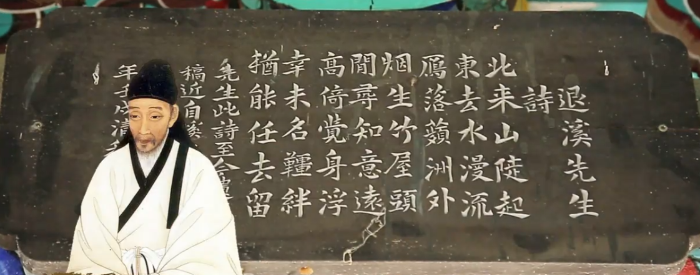 退溪先生
詩
北来山陡起
東去水漫流
鴈落蘋洲外
烟生竹屋頭
閒尋知意遠
高倚覺身浮
幸未名韁絆
猶能任去留
先生此詩至今
稿近自溪
年